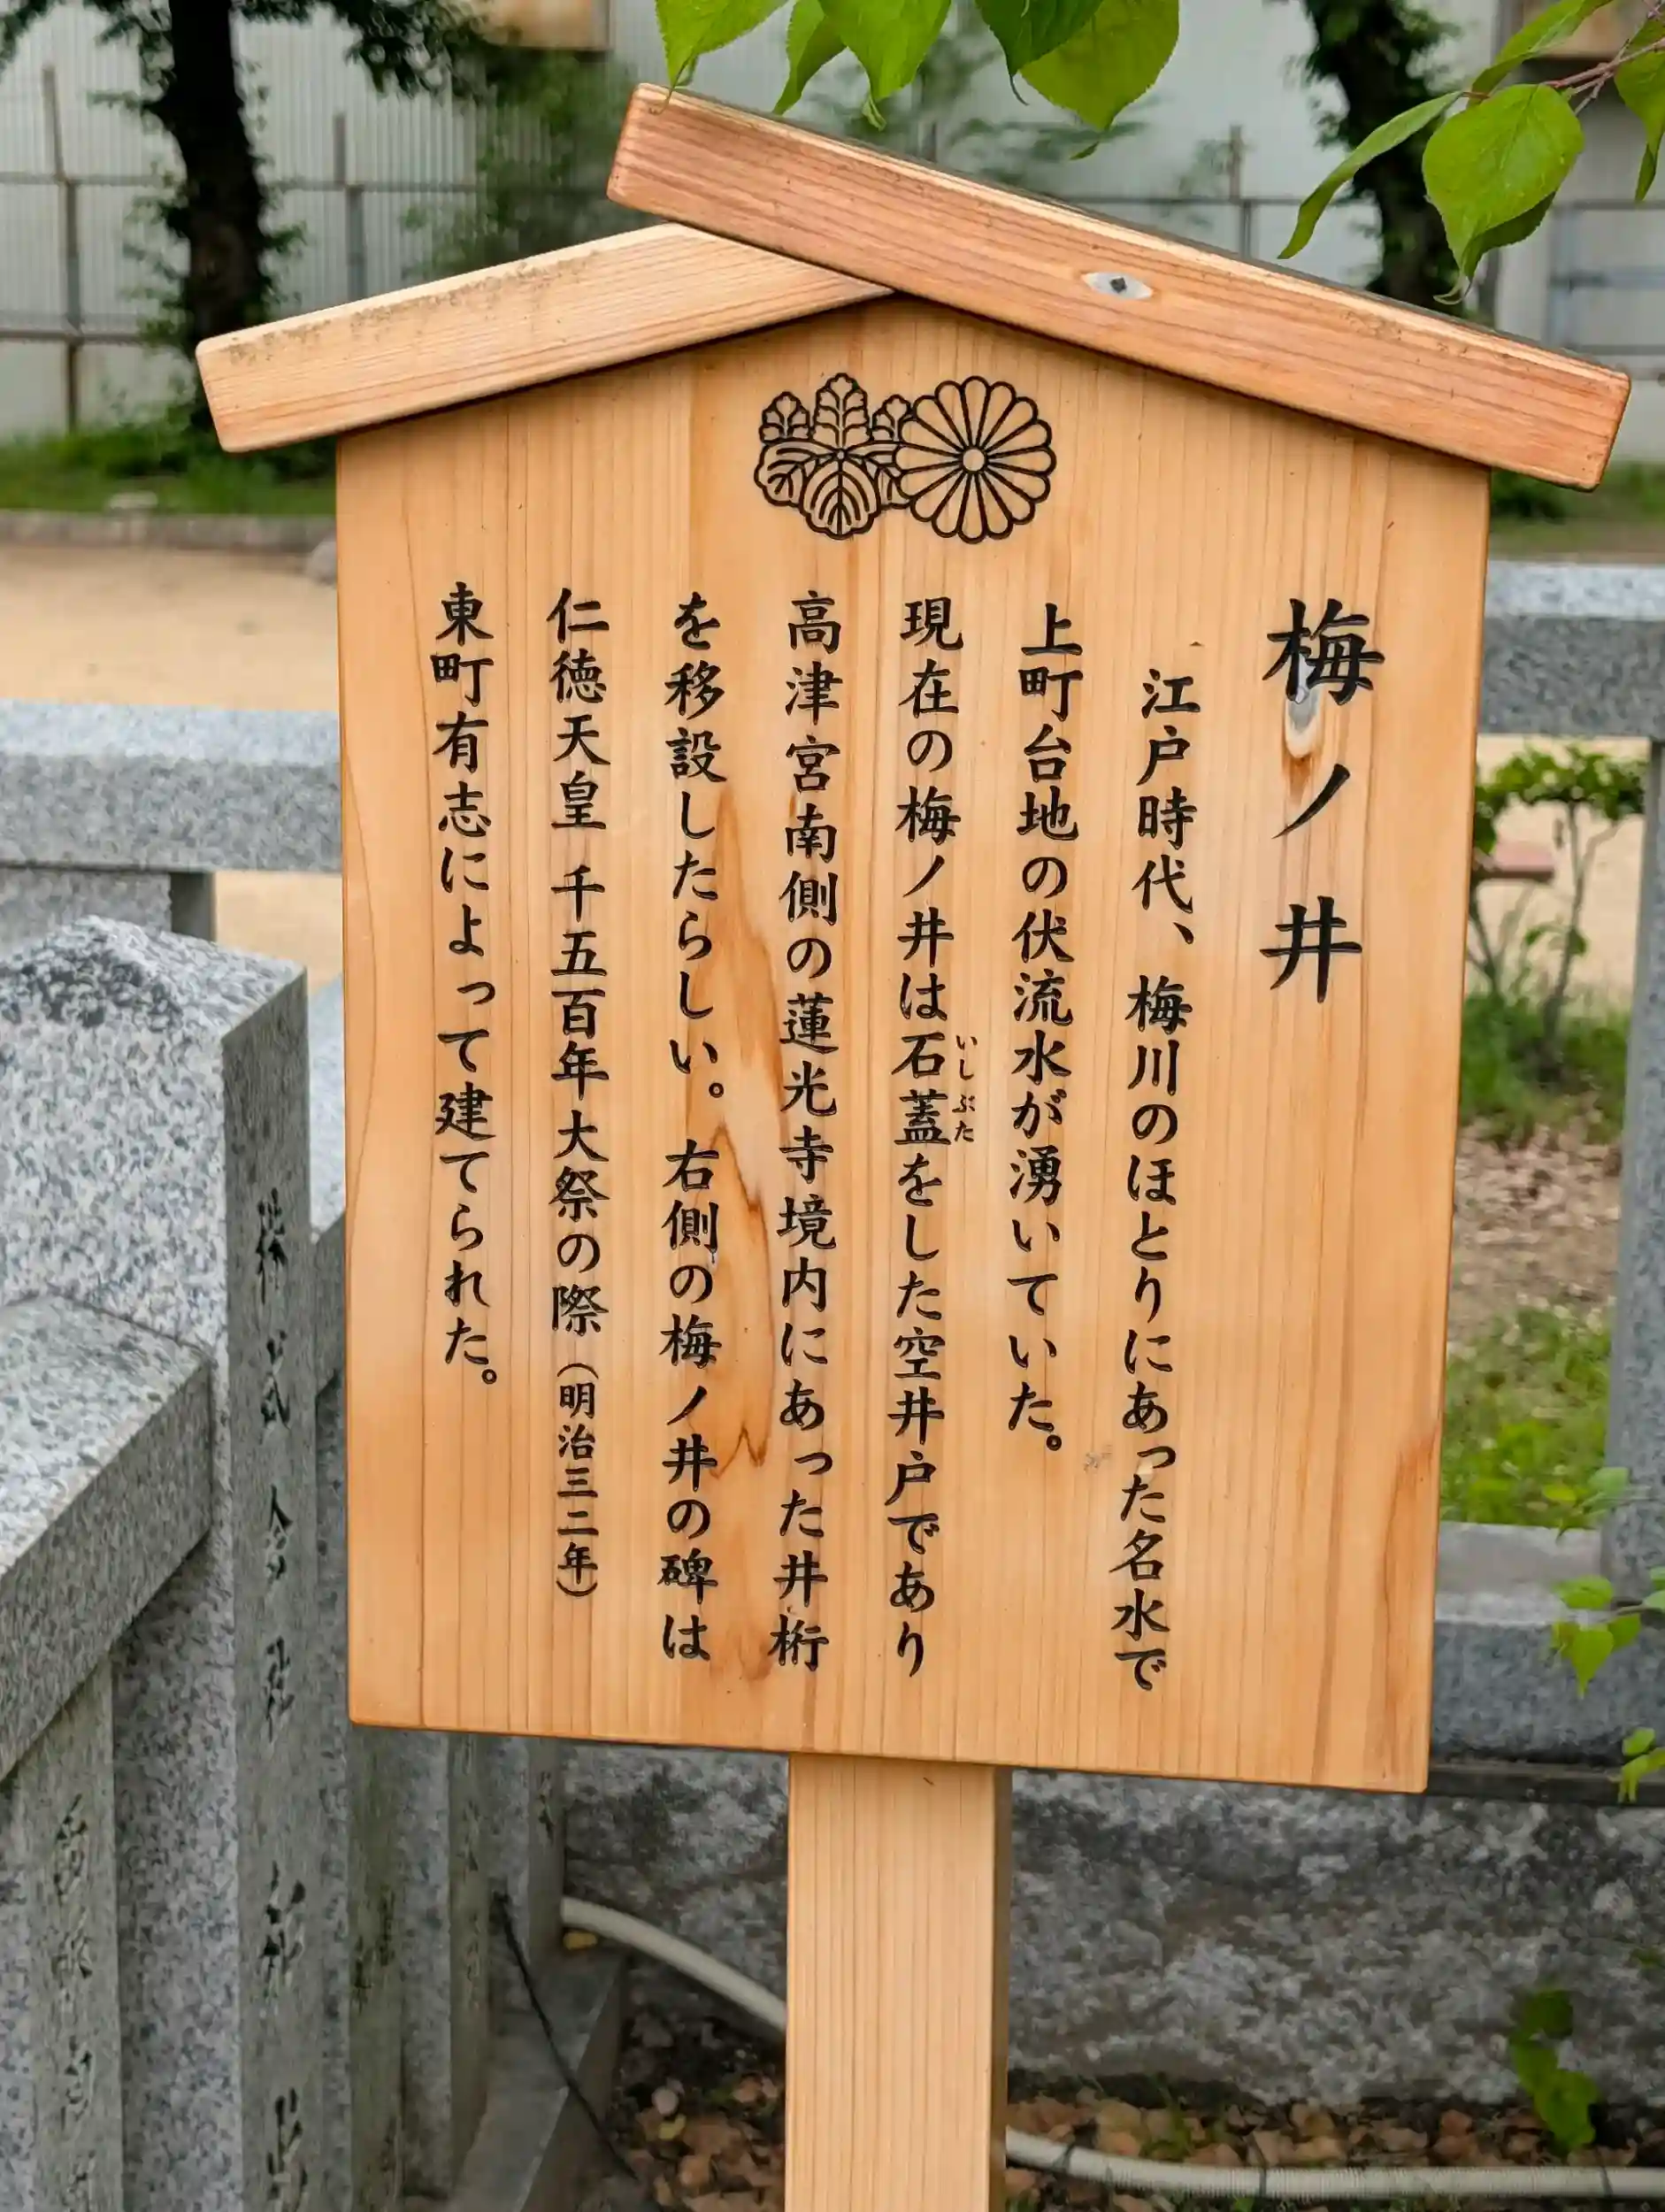 梅ノ井
江戸時代、梅川のほとりにあった名水で
上町台地の伏流水が湧いていた。
現在の梅ノ井は石蓋をした空井戸であり
いしぶた
高津宮南側の蓮光寺境内にあった井桁
を移設したらしい。右側の梅ノ井の碑は
仁徳天皇 千五百年大祭の際（明治三二年）
東町有志によって建てられた。
株式会社